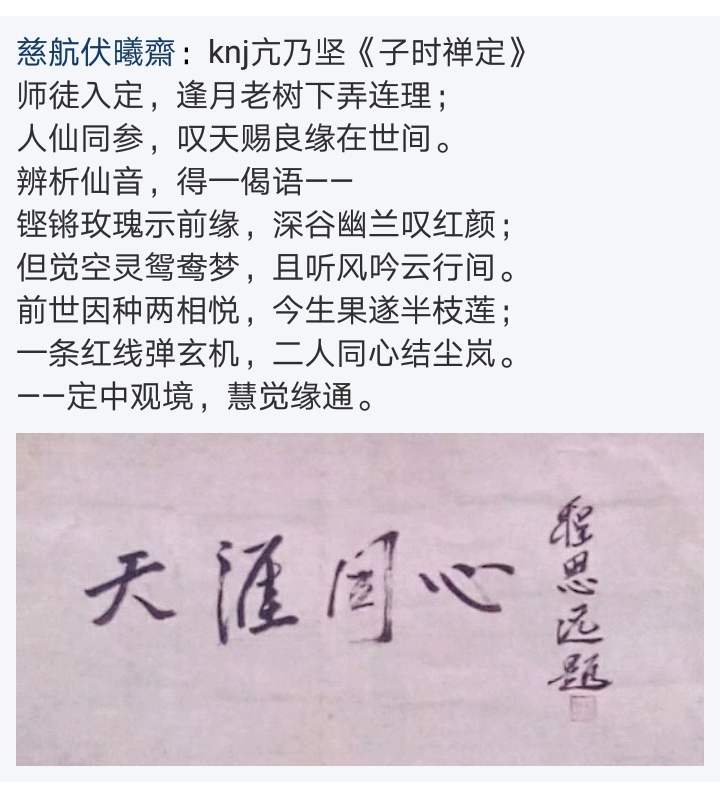 慈航伏曦齋：knj亢乃坚《子时禅定》
师徒入定，逢月老树下弄连理；
人仙同参，叹天赐良缘在世间。
辨析仙音，得一偈语——
铿锵玫瑰示前缘，深谷幽兰叹红颜；
但觉空灵鸳鸯梦，且听风吟云行间。
前世因种两相悦，今生果遂半枝莲；
一条红线弹玄机，二人同心结尘岚。
——定中观境，慧觉缘通。
天涯同心
程思远题